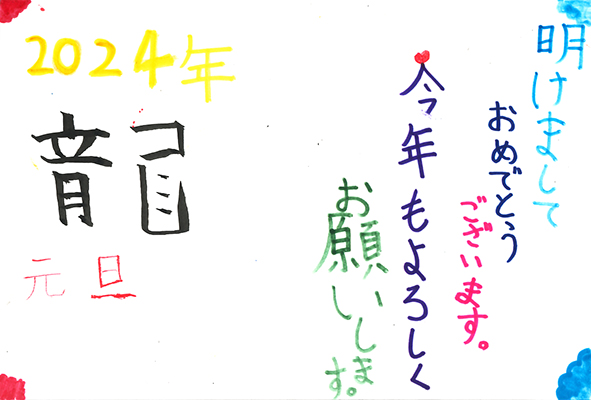 明けまして
おめでとう
ございます。
今年もよろしく
お願いします。
2024年
龍
元旦